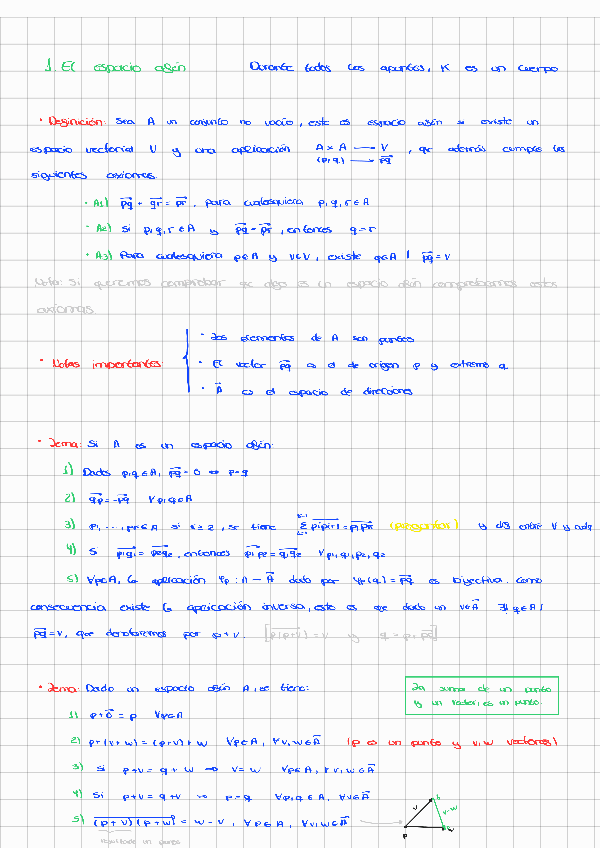 1. El espacio afín    Durante todos los apuntes, K es un cuerpo
• Definición: Sea A un conjunto no vacío, este es espacio afín si existe un
espacio vectorial V y una aplicación A × A → V, que además cumple los
(p,q) → \overrightarrow{pq}
siguientes axiomas.
• A1) \overrightarrow{pq} + \overrightarrow{qr} = \overrightarrow{pr}, para cualesquiera p,q,r ∈ A
• A2) Si p,q,r ∈ A y \overrightarrow{pq} = \overrightarrow{pr}, entonces q=r
• A3) Para cualesquiera p∈A y v∈V, existe q∈A | \overrightarrow{pq} = v
Nota: Si queremos comprobar que algo es un espacio afín comprobamos estos
axiomas
• Notas importantes:
• Los elementos de A son puntos
• El vector \overrightarrow{pq} es el de origen p y extremo q
• \overrightarrow{A} es el espacio de direcciones
• Lema: Si A es un espacio afín:
1) Dados p,q∈A, \overrightarrow{pq} = 0 ⇔ p=q
2) \overrightarrow{qp} = -\overrightarrow{pq} ∀p,q∈A
3) p₁, ..., pr∈A si r≥2, se tiene (preguntar) y dif entre V y
4) Si \overrightarrow{p₁q₁} = \overrightarrow{p₂q₂}, entonces \overrightarrow{p₁p₂} = \overrightarrow{q₁q₂} ∀p₁,q₁,p₂,q₂
5) ∀p∈A, la aplicación φp : A → \overrightarrow{A} dada por φp(q) = \overrightarrow{pq} es biyectiva. Como
consecuencia existe la aplicación inversa, esto es que dado un v∈\overrightarrow{A} ∃! q∈A |
\overrightarrow{pq} = v, que denotaremos por p+v.
• Lema: Dado un espacio afín A, se tiene:
La suma de un punto
y un vector, es un punto.
1) p+\overrightarrow{0} = p ∀p∈A
2) p+(v+w) = (p+v)+w ∀p∈A, ∀v,w∈\overrightarrow{A} (p es un punto y v,w vectores)
3) Si p+v = q+w ⇒ v=w ∀p∈A, ∀v,w∈\overrightarrow{A}
4) Si p+v = q+v ⇒ p=q ∀p,q∈A, ∀v∈\overrightarrow{A}
5) \overrightarrow{(p+v)(p+w)} = w-v, ∀p∈A, ∀v,w∈\overrightarrow{A}
v
p
w